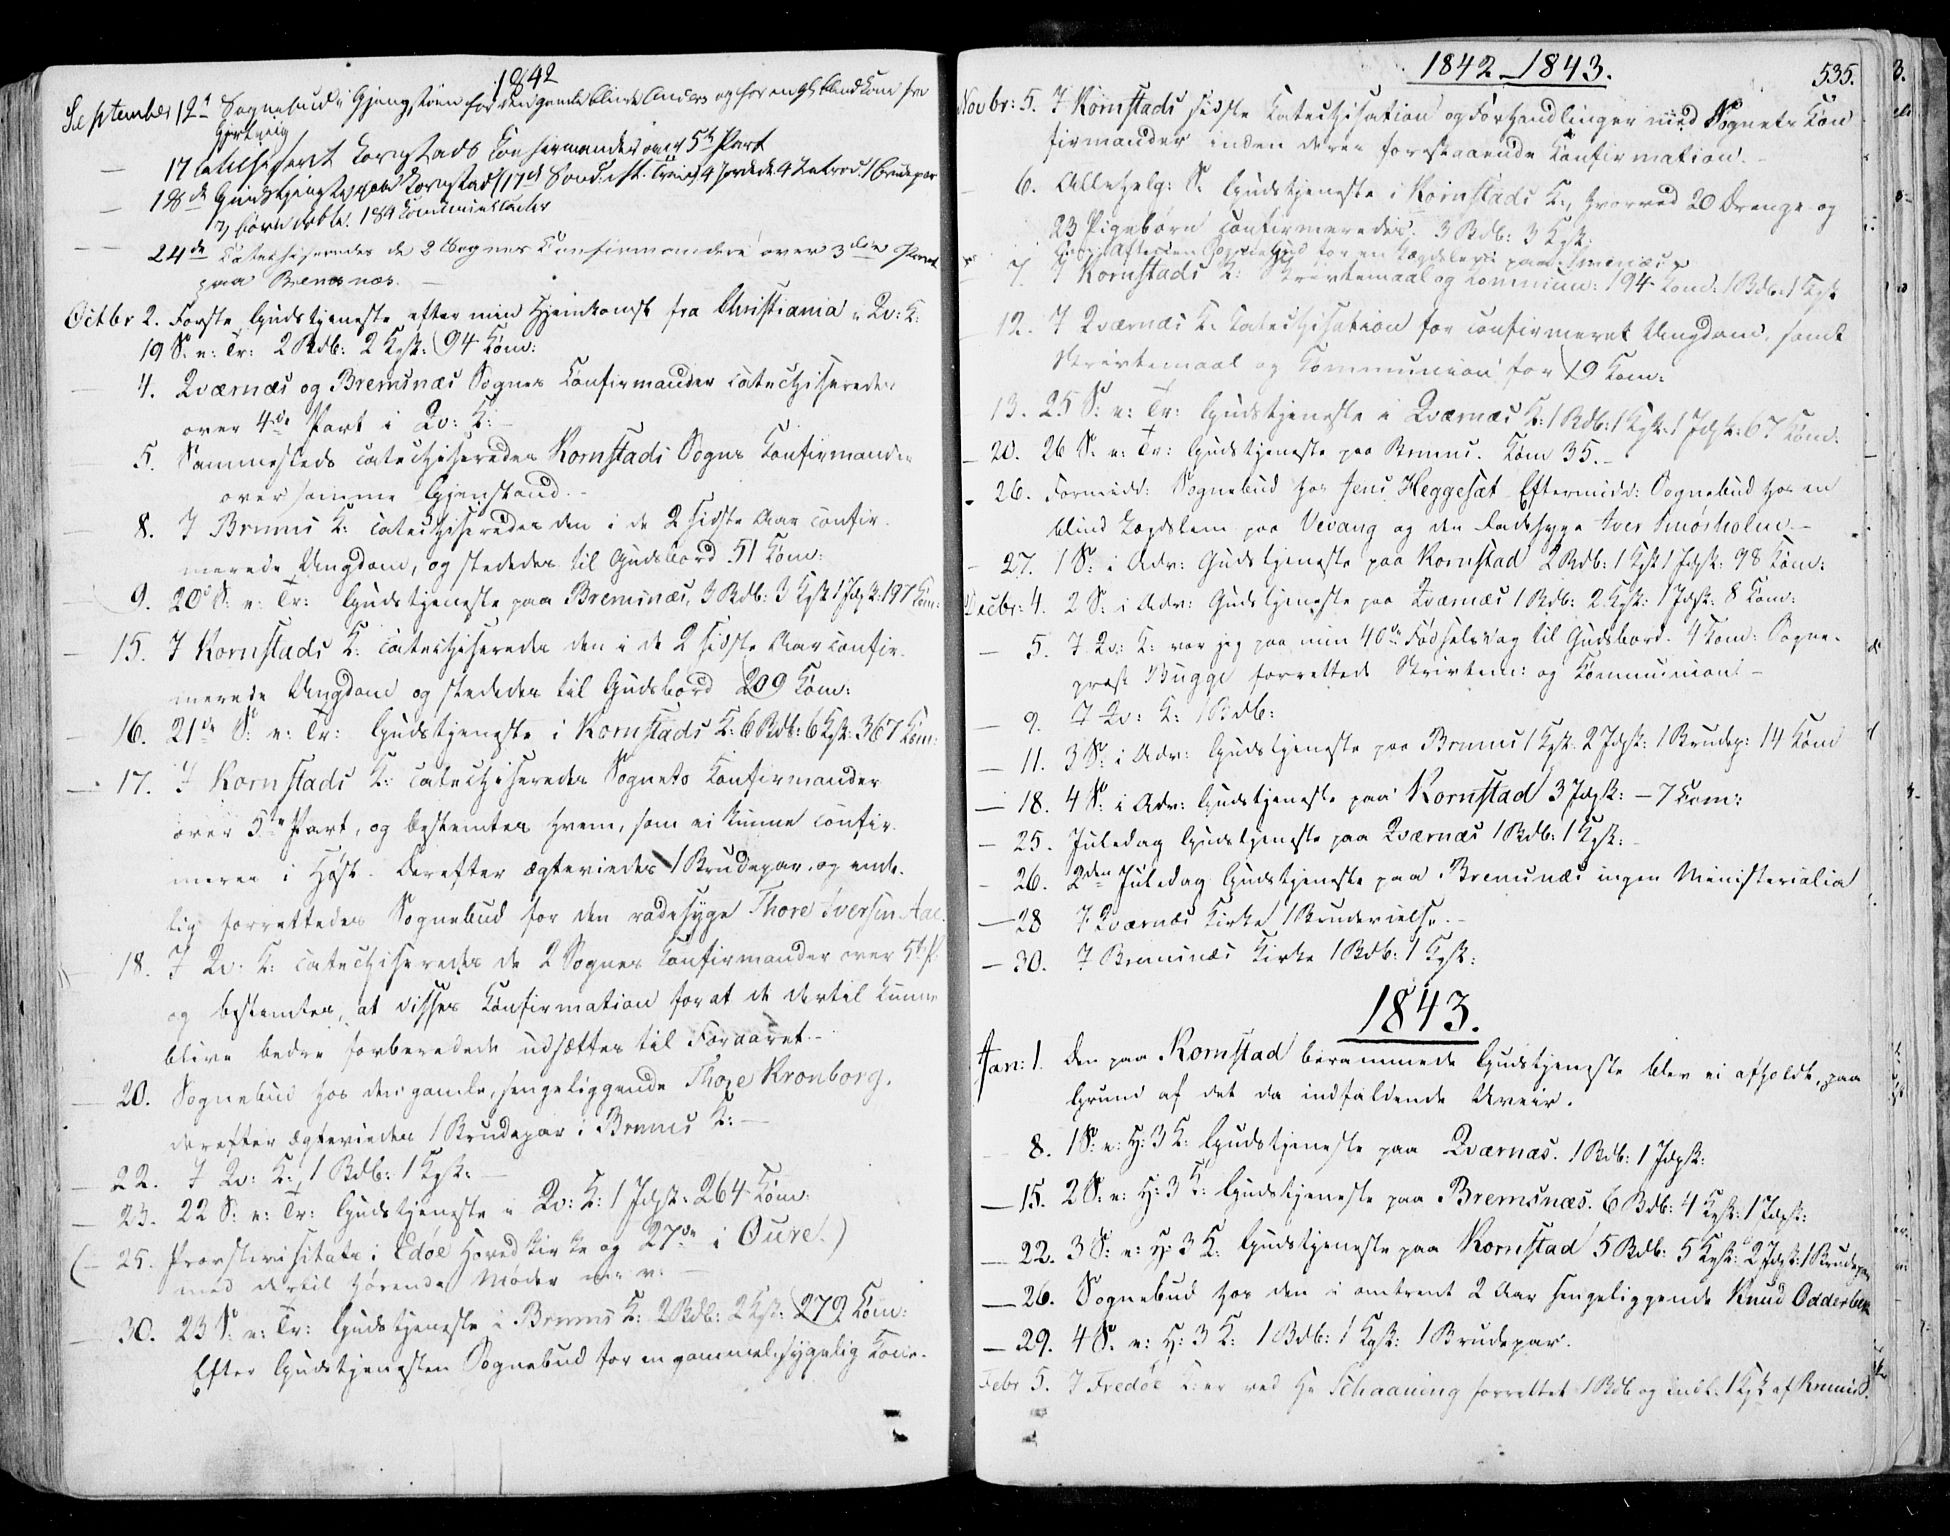 1842
Septembr 12te Sognebud i Gjengstøen for den gamle blinde Anders og for en gl. blind Kone fra
17 Catechiseret Kornstads Confirmander over 5te Part
18de Gudstjeneste paa Kornstad 17de Sønd. eft. Trinit. 4 Jordede 4 Introd. 1 Brudepar
7 Børn døbte. 184 Communicanter
24de Catechiseredes de 2 Sognes Confirmandere over 3die Part
paa Bremsnæs.
Octbr 2. Første Gudstjeneste efter min Hjemkomst fra Christiania i Qv: K:
19 S. e: Tr: 2 Bdb: 2 Kgk: 94 Com:
4. Qværnæs og Bremsnæs Sognes Confirmander catechiseredes
over 4de Part i Qv: K:
5. Sammesteds catechiseredes Kornstads Sogns Confirmander
over samme Gjenstand.
8. I Bremsnæs K: catechiseredes den i de 2 sidste Aar confir-
merede Ungdom, og stededes til Gudsbord 51 Com:
9. 20de S: e: Tr: Gudstjeneste paa Bremsnæs, 3 Bdb: 3 Kgk 1 Jdpk: 197 Com:
15. I Kornstads K: catechiseredes den i de 2 sidste Aar confir-
merede Ungdom og stededes til Gudsbord 209 Com:
16. 21de S: e: Tr: Gudstjeneste i Kornstads K: 6 Bdb: 6 Kgk: 367 Com:
17. I Kornstads K: catechiseredes Sognets Confirmander
over 5te Part, og bestemtes hvem, som ei kunne confir-
meres i Høst. Derefter ægteviedes 1 Brudepar, og ende-
lig forrettedes Sognebud for den radesyge Thore Iversen Aae.
18. I Qv: K: catechiseredes de 2 Sognes Confirmander over 5te P.
og bestemtes, at disses Confirmation for at de dertil kunne
blive bedre forberedede udsættes til Foraaret.
20. Sognebud hos den gamle, sengeliggende Thore Kronborg.
derefter ægteviedes 1 Brudepar i Bremsnæs K:
22. I Qv: K: 1 Bdb: 1 Kgk:
23. 22 S: e: Tr: Gudstjeneste i Qv: K: 1 Jdpk: 264 Com:
(25. Provstevisitats i Edøe Hovedkirke og 27de i Øure.)
med dertil hørende Møder m: v:
30. 23 S: e: Tr: Gudstjeneste i Bremsnæs K: 2 Bdb: 2 Kgk: 279 Com:
Efter Gudstjenesten Sognebud for en gammel sygelig Kone.
1842–1843.
535.
Novbr: 5. I Kornstads sidste Catechisation og Forhandlinger med Sognets Con
firmander inden deres forestaaende Confirmation.
6. Allehelg: S: Gudstjeneste i Kornstads K:, hvorved 20 Drenge og
23 Pigebørn confirmeredes. 3 Bdb: 3 Kgk:
7. I Kornstads K: Skriftemaal og Commun: 194 Com: 1 Bdb: 1 Kgk
12. I Qværnæs K: Catechisation for confirmeret Ungdom, samt
Skriftemaal og Communion for 19 Com:
13. 25 S: e: Tr: Gudstjeneste i Qværnæs K: 1 Bdb: 1 Kgk: 1 Jdpk: 67 Com:
20. 26 S: e: Tr: Gudstjeneste paa Bremsnæs. Com 35.
26. Formidd: Sognebud hos Jens Heggeset Eftermidd: Sognebud hos en
blind Lægdslem paa Vevang og den radesyge Iver Smørholm.
27. 1 S: i Adv: Gudstjeneste paa Kornstad 2 Bdb: 1 Kgk 1 Jdpk: 98 Com:
Decbr: 4. 2 S: i Adv: Gudstjeneste paa Qværnæs 1 Bdb: 2 Kgk: 1 Jdpk: 8 Com:
5. I Qv: K: var jeg paa min 40de Fødselsdag til Gudsbord. 4 Com: Sogne-
præst Bugge forrettede Skriftem: og Communion
9. I Qv: K: 1 Bdb:
11. 3 S: i Adv: Gudstjeneste paa Bremsnæs 1 Kgk: 2 Jdpk: 1 Brudep: 14 Com
18. 4 S: i Adv: Gudstjeneste paa Kornstad 3 Jdpk: – 7 Com:
25. Juledag Gudstjeneste paa Qværnæs 1 Bdb: 1 Kgk:
26. 2den Juledag Gudstjeneste paa Bremsnæs ingen Ministerialia
28 I Qværnæs Kirke 1 Brudevielse.
30. I Bremsnæs Kirke 1 Bdb: 1 Kgk:
1843.
Jan: 1. Den paa Kornstad berammede Gudstjeneste blev ei afholdt, paa
Grund af det da indfaldende Uveir.
8. 1 S: e: H: 3 K: Gudstjeneste paa Qværnæs. 1 Bdb: 1 Jdpk:
15. 2 S: e: H: 3 K: Gudstjeneste paa Bremsnæs. 6 Bdb: 4 Kgk: 1 Jdpk:
22. 3 S: e: H: 3 K: Gudstjeneste paa Kornstad 5 Bdb: 5 Kgk: 2 Jdpk: 1 Brudepar
26. Sognebud hos den i omtrent 2 Aar sengeliggende Knud Odderbek
29. 4 S. e: H: 3 K: 1 Bdb: 1 Kgk: 1 Brudepar.
Febr 5. I Fredøe K: er ved Hr Schaaning forrettet 1 Bdb og Indl. 1 Kgk af Bremsn S.